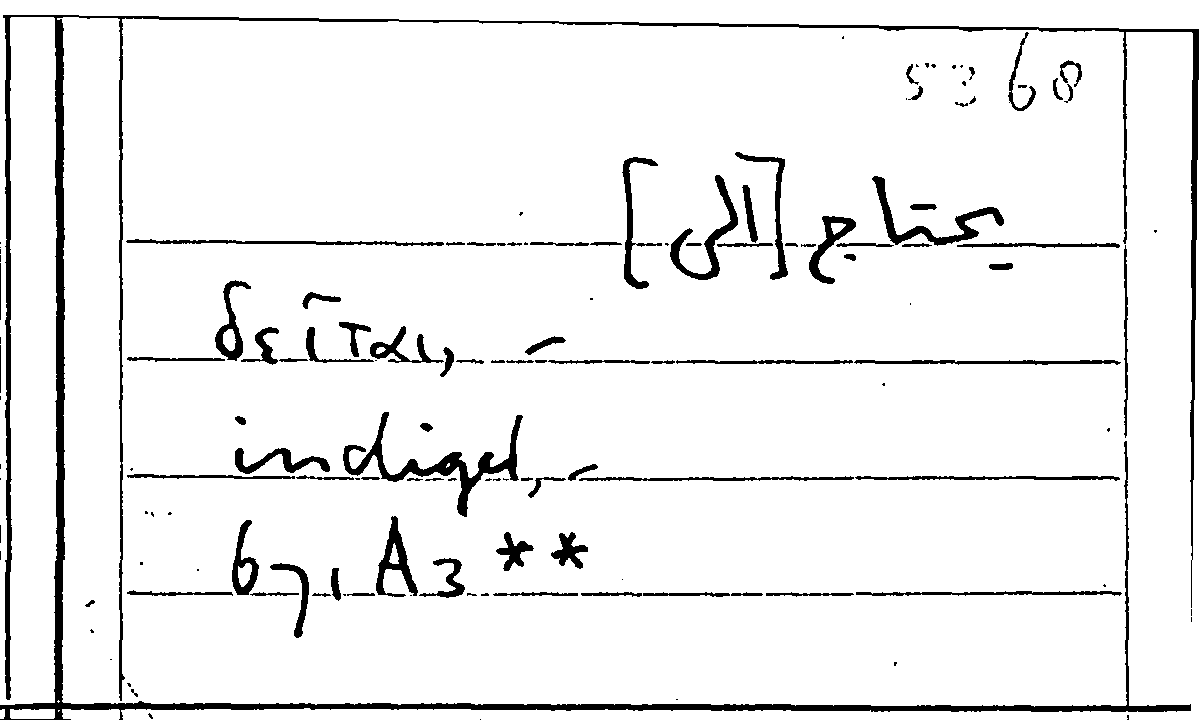 5368
يحتاج [الى]
δεῖται, –
indiget, –
67, A3 **